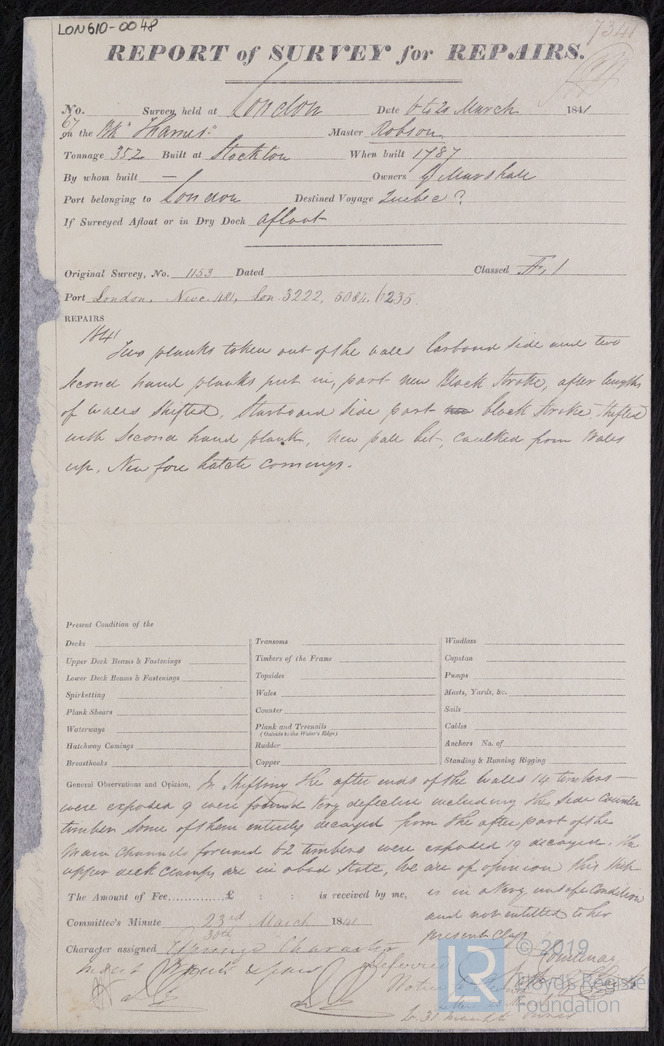 LON610-0048
7341
REPORT of SURVEY for REPAIRS.
No. Survey, held at London Date 6 to 20 March 1841
67
on the Bk "Thames" Master Robson
Tonnage 352 Built at Stockton When built 1787
By whom built — Owners G Marshall
Port belonging to London Destined Voyage Quebec?
If Surveyed Afloat or in Dry Dock afloat
Original Survey, No. 1153 Dated Classed Æ 1
Port London, Newc. 481, Lon 3222, 5084, 6235.
REPAIRS
1841
Two planks taken out of the wales larboard side and two
second hand planks put in, part new Black Strake, after lengths
of wales shifted, Starboard side part black strake shifted
with second hand plank, New pall bit, caulked from Wales
up, New fore hatch comings.
Present Condition of the
Decks
Upper Deck Beams & Fastenings
Lower Deck Beams & Fastenings
Spirketting
Plank Shears
Waterways
Hatchway Comings
Breasthooks
Transoms
Timbers of the Frame
Topsides
Wales
Counter
Plank and Treenails
(Outside to the Water's Edge)
Rudder
Copper
Windlass
Capstan
Pumps
Masts, Yards, &c.
Sails
Cables
Anchors No. of
Standing & Running Rigging
General Observations and Opinion, In shifting the after ends of the Wales 14 timbers
were exposed 9 were found very defective including the side counter
timber some of them entirely decayed from the after part of the
Main Channels forward 62 timbers were exposed 19 decayed. The
upper deck clamps are in a bad state, We are of opinion this ship
is in a very unsafe condition
and not intitled to her
present class
The Amount of Fee £ : : is received by me,
Committee's Minute 23rd March 1841
30th
Character assigned Character
Deferred
© 2019
LR
Lloyd's Register
Foundation